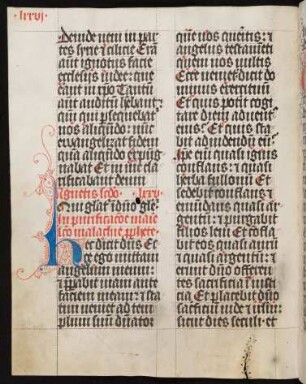 lxxvi
Deinde veni in par
tes syrie et cilicie Erā
aut ignotus facie
ecclesijs iudee: que
erant in xpo Tantū
aut auditū habeant:
qm qui persequebat
nos aliquādo: nūc
ewangelizat fidem
quā aliquādo expug
nabat Et in me cla
rificabant deum
Agnetis scdo lxxv
Qui gliat i dno glie
In purificatōe marie
lco malachie pphete
Hec dicit dns Ec
ce ego mittam
angelum meum:
et pparabit viam ante
faciem meam: et sta
tim veniet ad tem
plum suū dnator
quē vos queritis: et
angelus testamenti
quem vos vultis
Ecce venit dicit do
minus exercituū
Et quis poterit cogi
tare diem aduent9
eius Et quis sta
bit ad videndū eū
Ipe eni quasi ignis
conflans: et quasi
herba fullonū Et
sedebit conflans et
emūdans quasi ar
gentū: et purgabit
filios leui Et cōfla
bit eos quasi aurū
et quasi argentū: et
erunt dno offeren
tes sacrificia ī iusti
cia Et placebit dno
sacrificiū iude et ihrlm:
sicut dies seculi et